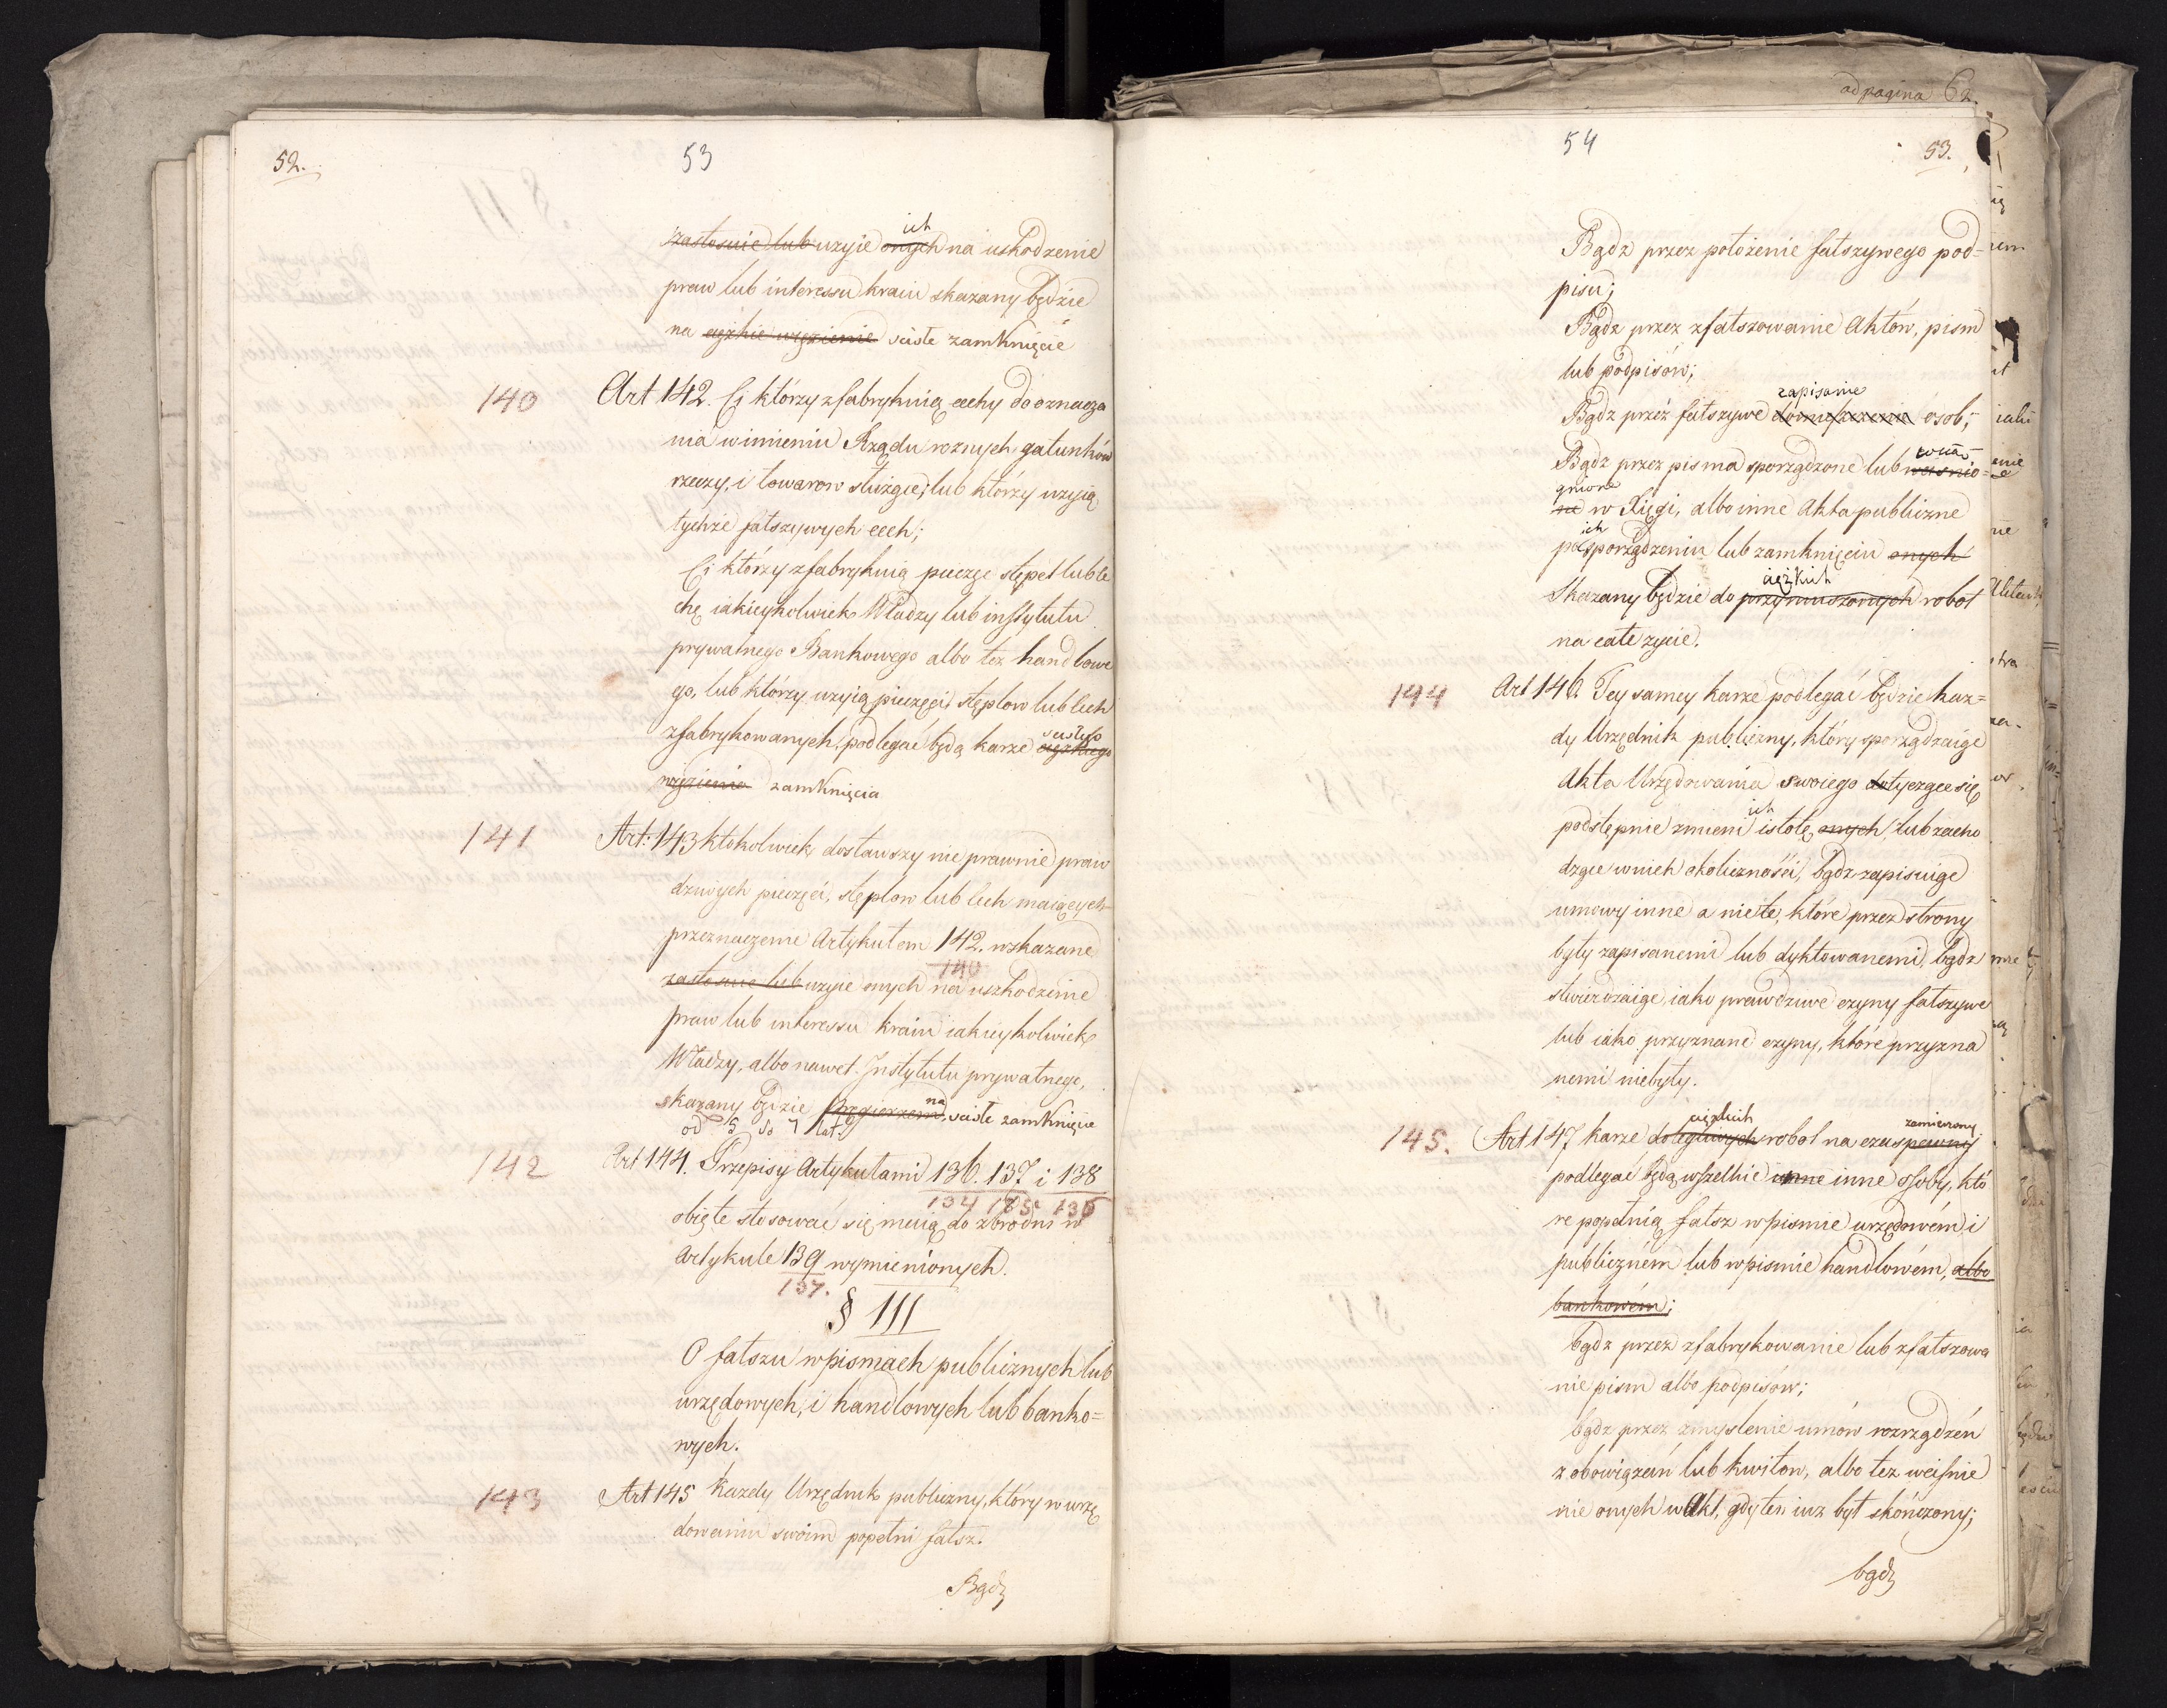 52.
53
zastosuie lub uzyie onych ich na uskodzenie
praw lub interessu kraiu skazany będzie
na cięzkie więzienie sciste zamknięcie
140 Art 142. Ci którzy zfabrykuią cechy do oznacza
nia w imieniu Rządu roznych gatunków
rzeczy, i towarow służące, lub którzy uzyią
tychże fałszywych cech;
Ci którzy zfabrykuią pieczęć stępel lub ce
chę iakieykolwiek Władzy lub instytutu
prywatnego Bankowego albo tez handlowe
go, lub którzy uzyią pieczęci, stęplow lub cech
zfabrykowanych, podlegać będą karze cięzkiego scisłego
więzienia zamknięcia
141 Art: 143 Ktokolwiek dostawszy nie prawnie praw
dziwych pieczęci, stęplow lub cech maiących
przeznaczenie Artykułem 142. wskazane
140
zastosuie lub uzyie onych na uszkodzenie
praw lub interessu kraiu iakieykolwiek
Władzy, albo nawet Instytutu prywatnego,
skazany będzie Pręgierzem, na sciste zamknięcie
od 5 do 7 lat.
142 Art 144. Przepisy Artykułami 136. 137 i 138
134 135 136
obięte stosować się maią do zbrodni w
Artykule 139 wymienionych.
137.
§ III
O fałszu w pismach publicznych lub
urzędowych, i handlowych lub banko=
wych.
143 Art 145 Kazdy Urzędnik publiczny, który w urzę
dowaniu swoim popełni fałsz.
Bądź
ad pagina 62.
54
53.
Bądz przez położenie fałszywego pod=
pisu;
Bądz przez zfałszowanie Aktów, pism
lub podpisów;
zapisanie
Bądz przez fałszywe osob;
Bądz przez pisma sporządzone lub wciśnio= wcią
gnione
ne w Xięgi, albo inne Akta publiczne
po ich sporządzeniu lub zamknięciu onych
Skazany będzie do przymuszonych cięzkich robot
na całe zycie.
144 Art 146. Tey samey karze podlegać będzie kaz=
dy Urzędnik publiczny, który sporządzaiąc
Akta Urzędowania swoiego dotyczące się
podstępnie zmieni ich istotę onych, lub zacho
dzące w nich okoliczności, bądz zapisuiąc
umowy inne a nie te, które przez strony
były zapisanemi lub dyktowanemi, bądz
stwierdzaiąc iako prawdziwe czyny fałszywe
lub iako przyznane czyny, które przyzna
nemi niebyły.
145. Art 147 karze dolegliwych cięzkich robot na czas pewny zamierzony
podlegać będą wszelkie inne inne osoby, któ
re popełnią fałsz w pismie urzędowém i
publiczném lub w pismie handlowém, albo
bankowém;
bądz przez zfabrykowanie lub zfałszowa
nie pism albo podpisów;
bądz przez zmyslenie umów rozrządzeń
zobowiązań lub kwitow, albo tez wcisnie
nie onych w Akt, gdy ten iuz był skończony;
bądź